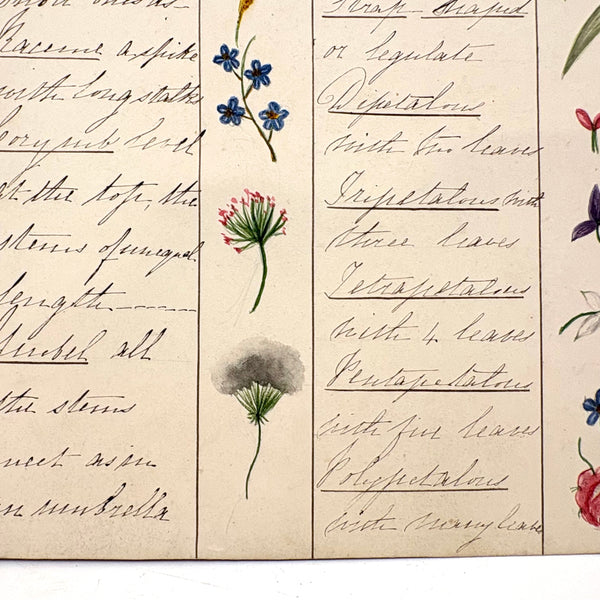 Raceme a spike
with long stalks
Corymb level
at the top, the
stems of unequal
length
Umbel all
the stems
meet as in
an umbrella
Strap-shaped
or legulate
Dipetalous
with two leaves
Tripetalous with
three leaves
Tetrapetalous
with 4 leaves
Pentapetalous
with five leaves
Polypetalous
with many leaves